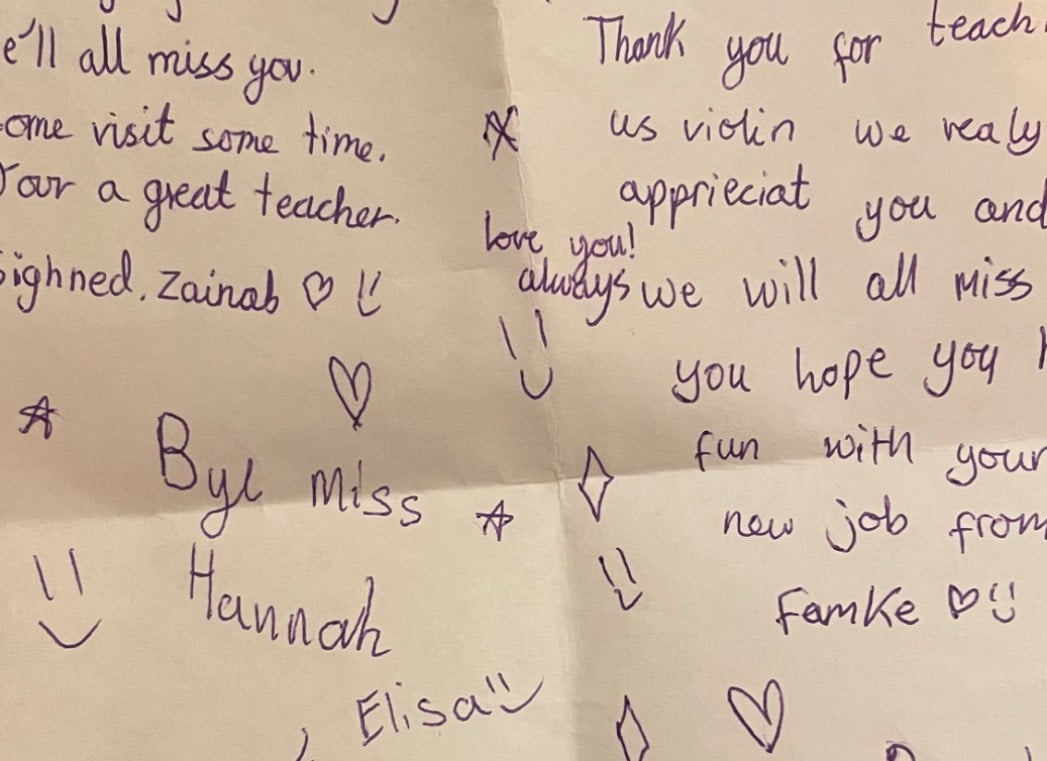 e'll all miss you.
ome visit some time.
Your a great teacher.
Sighned. Zainab
Bye miss
Hannah
Elisa
Thank you for teach
us violin we realy
apprieciat you and
love you!
always we will all miss
you hope you
fun with your
new job from
Famke